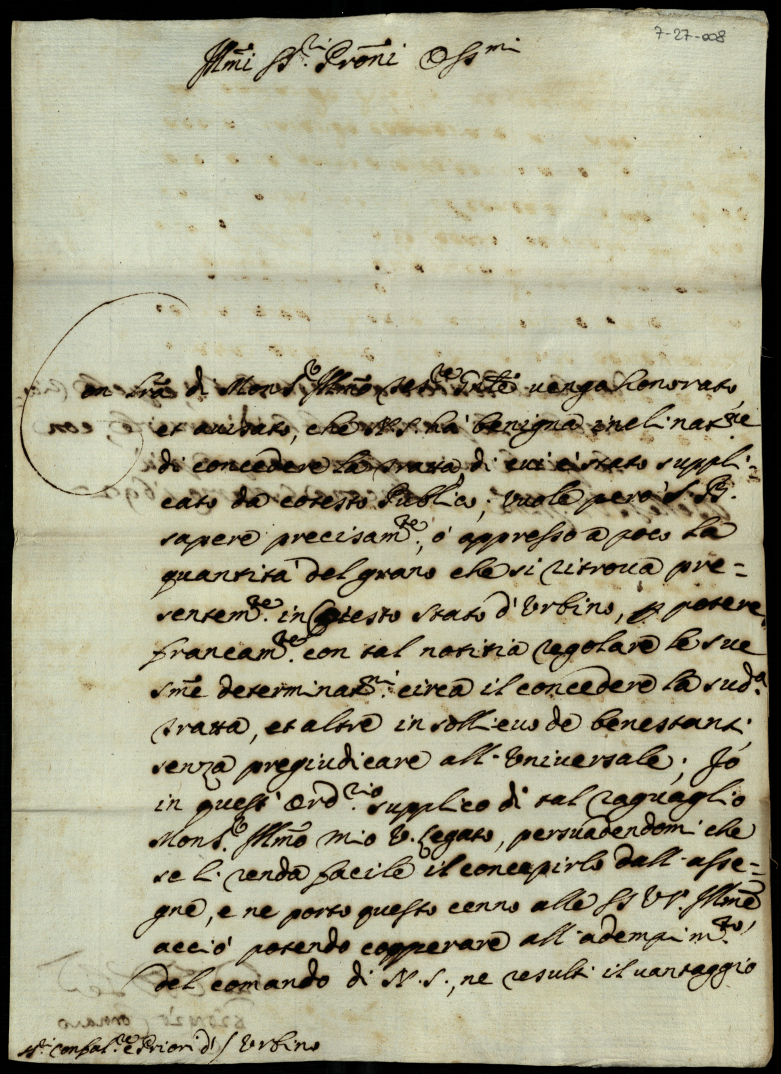 7-27-008
Ill.mi SS.ri Proñi Oss.mi
Con lra di Mons.r Ill.mo vengo honorato,
et auisato, che N.S. ha' benigna inclinat.ne
di concedere la tratta, di cui è stato suppli-
cato da cotesto Publico; vuole però S. B.
sapere precisam.te, ò appresso a poco la
quantità del grano che si ritroua pre=
sentem.te in questo stato d'Vrbino, p potere
francam.te con tal notitia regolare le sue
sme determinat.ni circa il concedere la sud.a
tratta, et altre in sollieuo de benestanti
senza pregiudicare all'Vniuersale; Io
in quest'ord.rio supplico di tal raguaglio
Mons.r Ill.mo mio V.Legato, persuadendomi che
se li renda facile il concepirlo dall'asse=
gne, e ne porto questo cenno alle SS VV. Ill.me
acciò potendo cooperare all'adempim.to
del comando di N.S., ne resulti il uantaggio
SS.ri Confal.re e Priori d'/ Vrbino